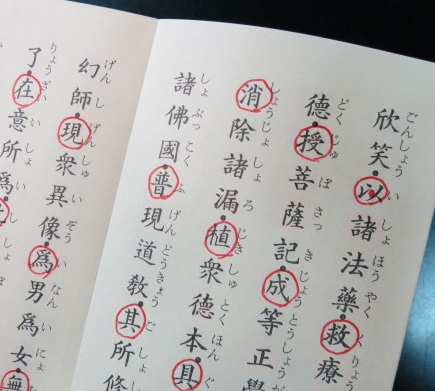 ごんしょう い しょ ほう やく く りょう
欣笑以諸法藥救療
どく じゅ ぼ さっ き じょう とう しょう
德授菩薩記成等正
しょう じょ しょ ろ じき しゅ とく ほん ぐ
消除諸漏植衆德本具
しょ ぶっ こく ふ げん どう きょう ご しょ
諸佛國普現道教其所修
げん し げん しゅ い ぞう い なん い にょ
幻師現衆異像爲男爲女無
りょう ざい い しょ い
了在意所爲